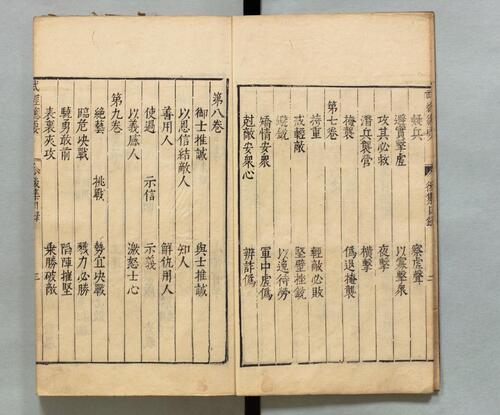 疑兵　察虛聲
避實擊虛　以寡擊衆
攻其必救　夜擊
潛兵襲營　橫擊
掩襲　偽退掩襲
第七卷
持重　輕敵必敗
戒輕敵　堅壁挫銳
避銳　以逸待勞
矯情安衆　軍中虛偽
尅敵安衆心　辨詐偽
第八卷
御士推誠　與士推誠
以恩信結敵人　知人
善用人　觧仇用人
使過　示信　示義
以義感人　激怒士心
第九卷
絶藝　挑戰　勢宜决戰
臨危决戰　戮力必勝
驍勇敢前　陷陣摧堅
表裏夾攻　乘勝破敵
武經總要　後集目録　三